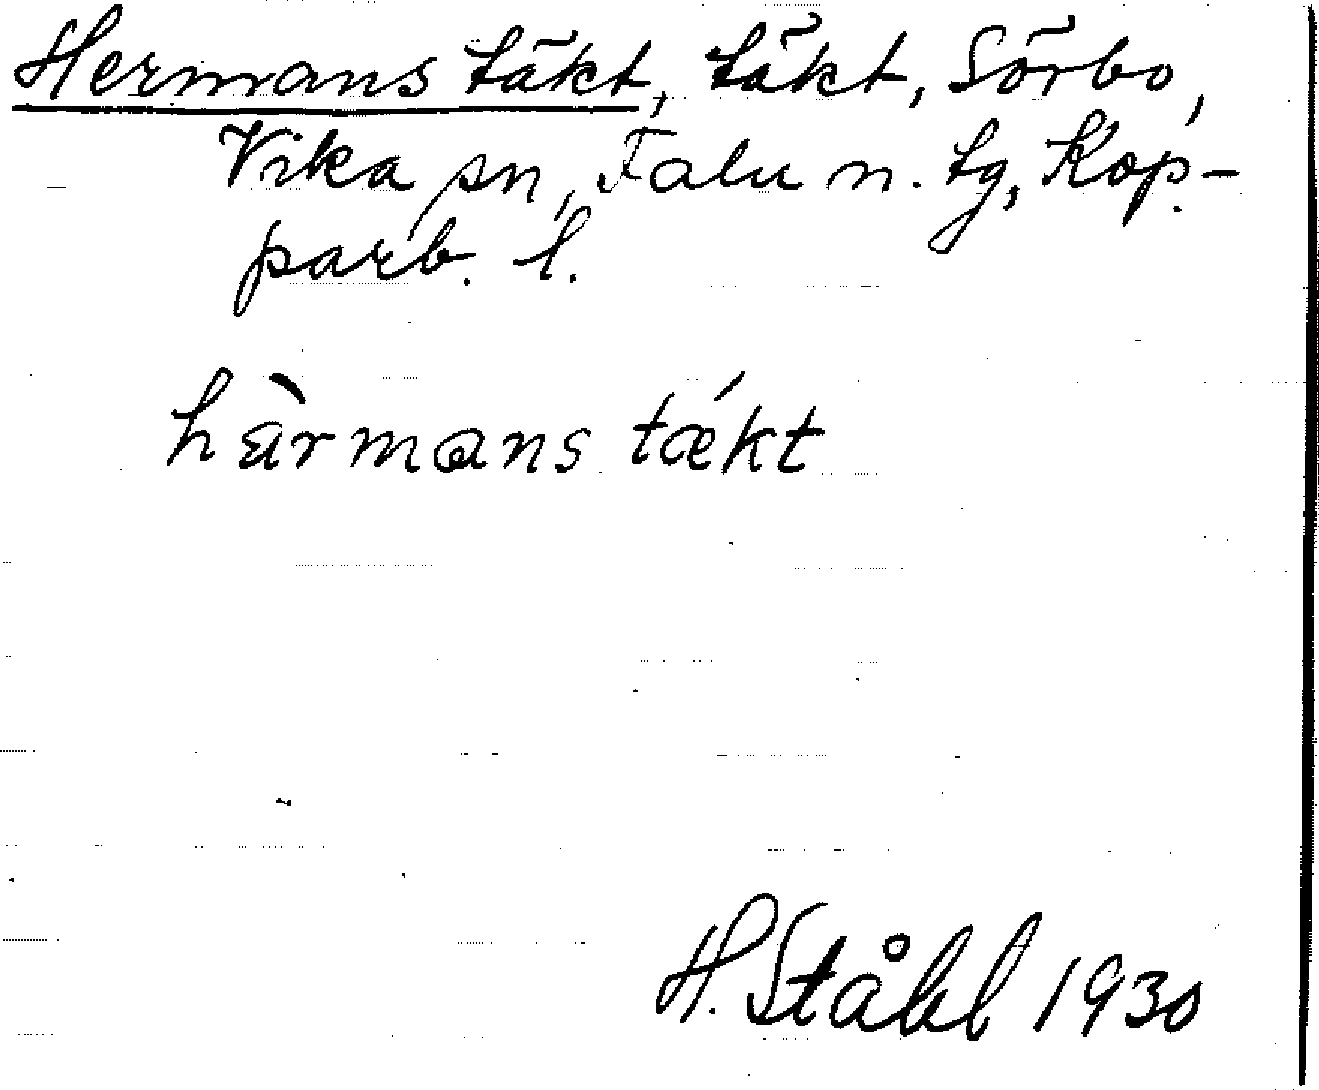 Hermans täkt, täkt, Sörbo,
Vika sn, Falu n. tg, Kop-
parb. l.
hàrmans tǽkt
H. Ståhl 1930